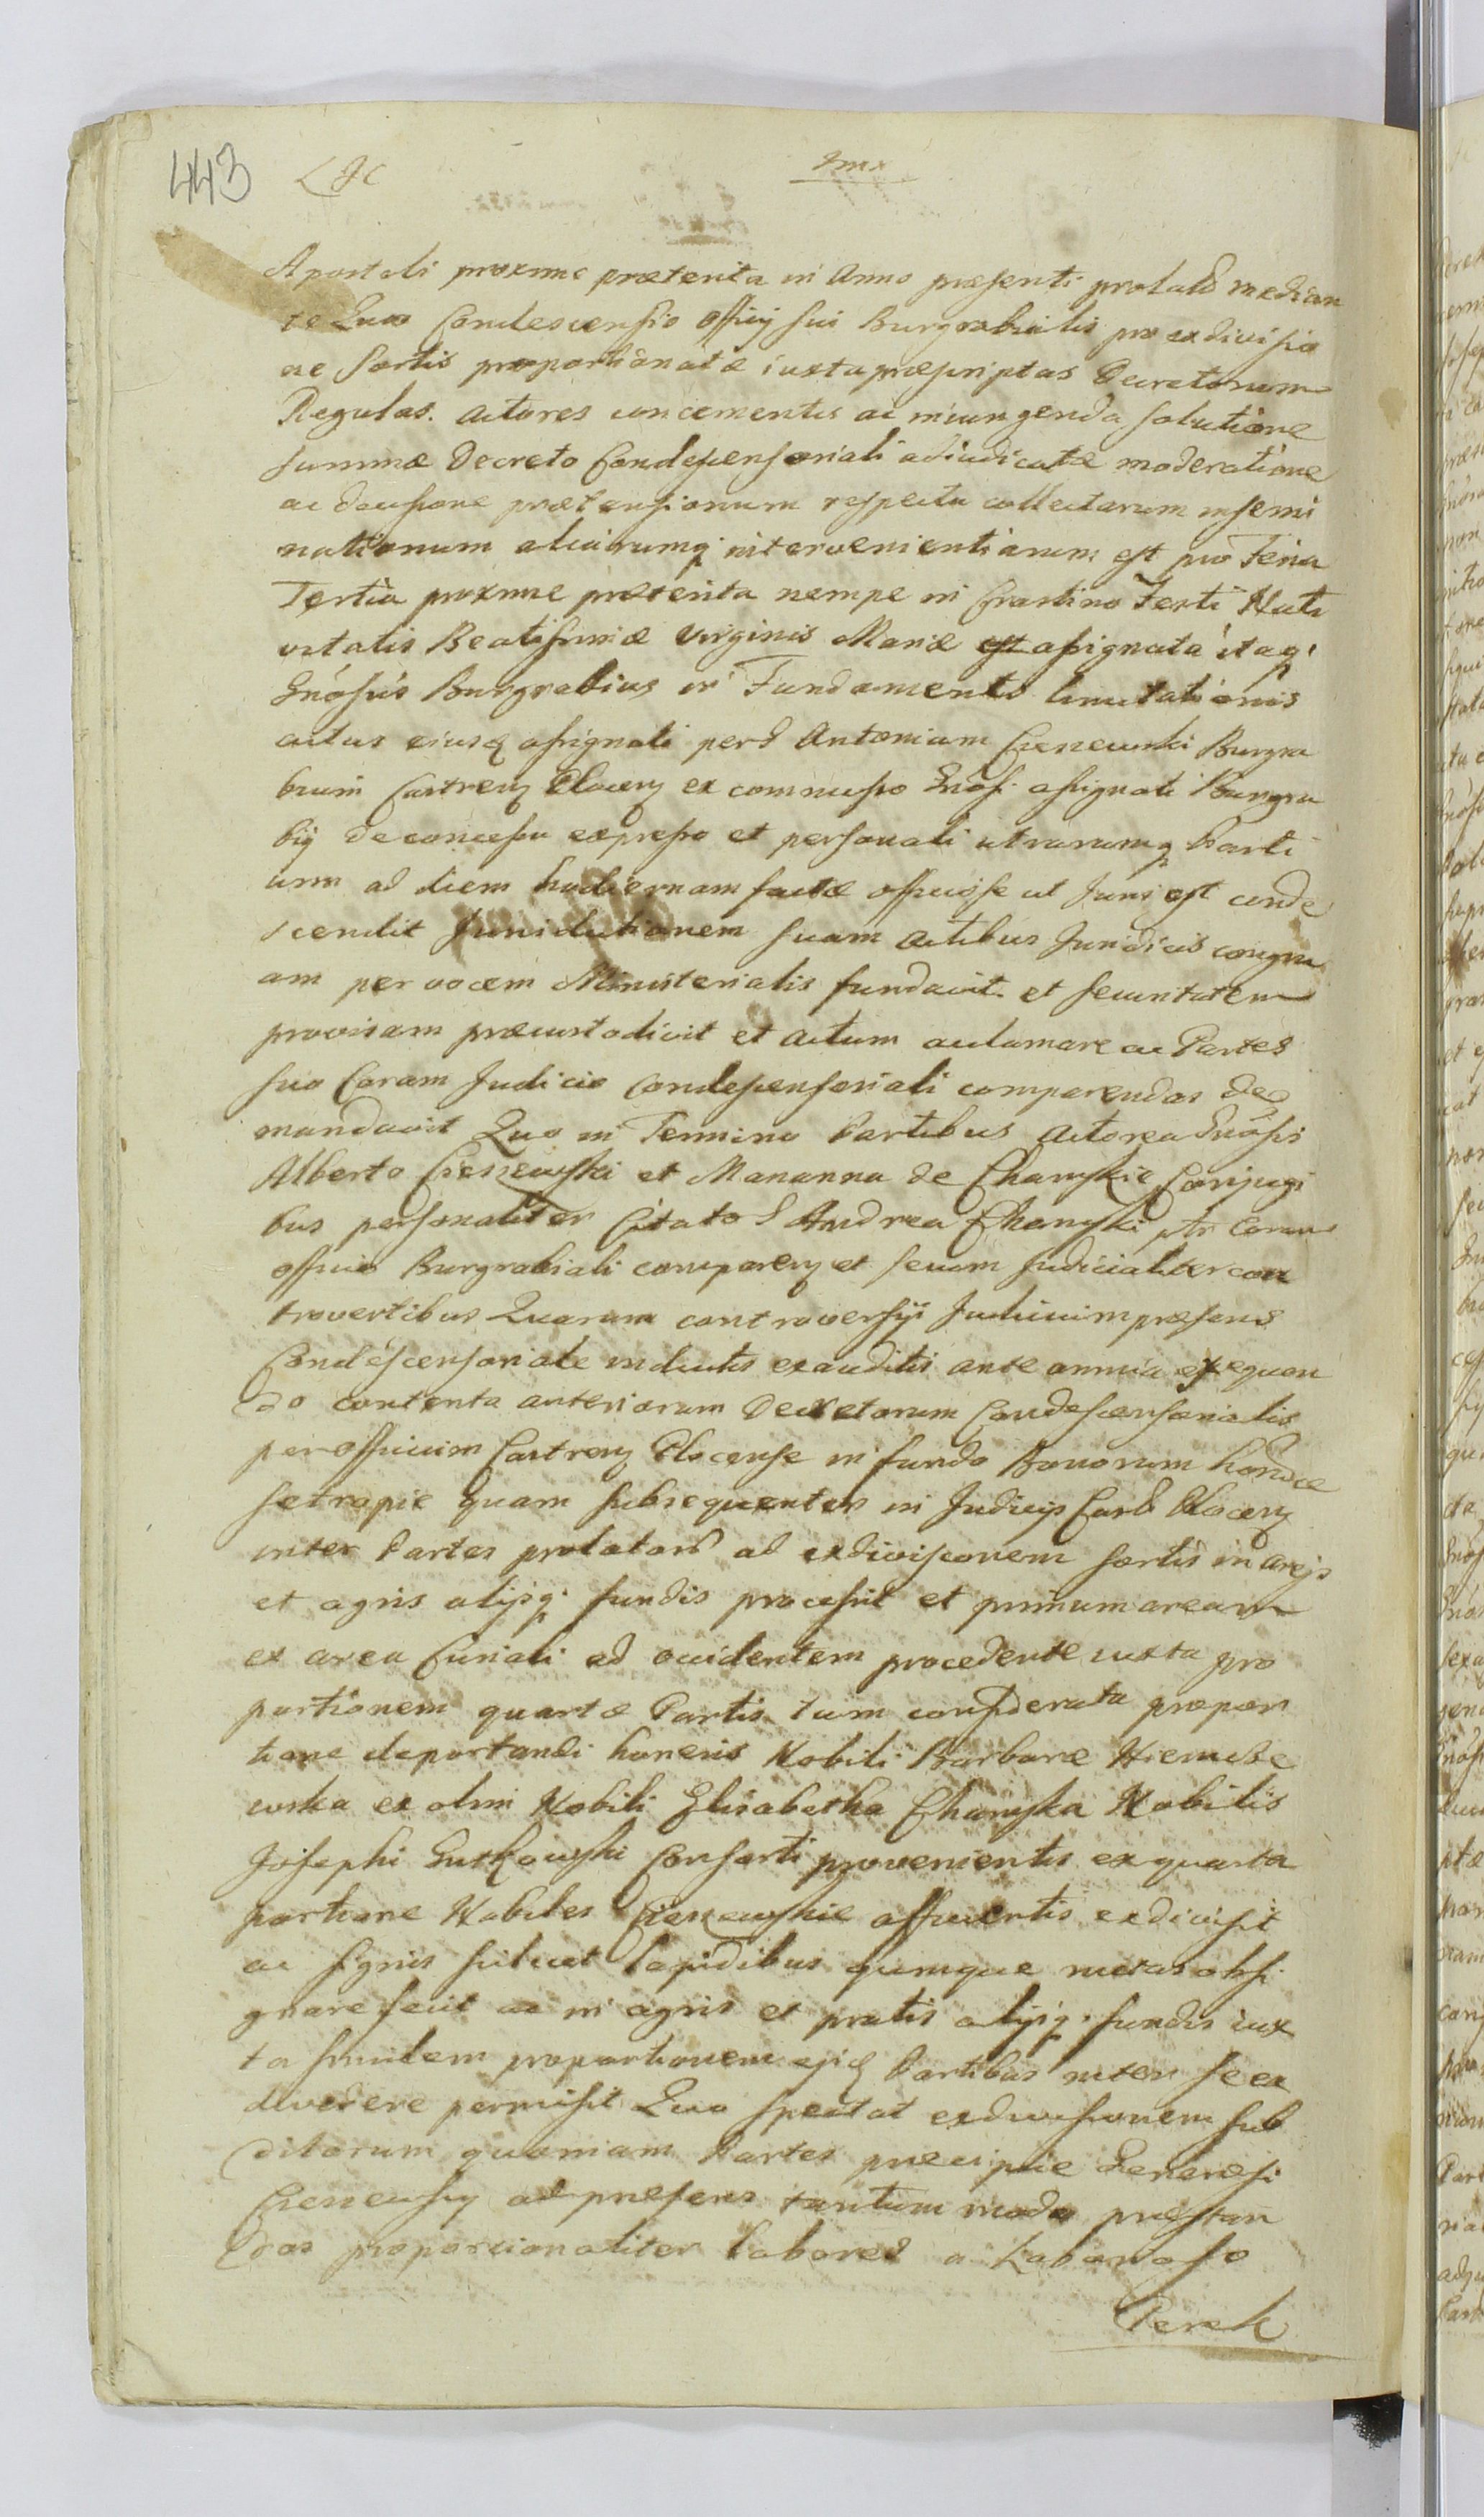 443
Apostoli proxime præterita in Anno præsenti prolato median
te Quo Condescensio Officij sui Burgrabialis pro exdivisio
ne Sortis proportionatæ iuxta præscriptas Decretorum
Regulas. Actores concernentis ac iniungenda solutione
summæ Decreto Condescensoriali adiudicatæ moderatione
ac decisione prætensionum respectu collectarum insemi
nationum aliarumq intervenientiarum est pro Feria
Tertia proxime præterita nempe in Crastino Festi Nati
vitatis Beatissimæ Virginis Mariæ est assignata itaq
Gnosus Burgrabius in Fundamento limitationis
actus eiusq assignati per G Antonium Ciessewski Burgra
bium Castren Plocen ex commisso Gnosi assignati Burgra
bij de concessu expresso et personali utrarumq Parti
um ad diem hodiernam factæ officiose ut Juris est conde
scendit Jurisdictionem suam actibus Juridicis congru
am per vocem Ministerialis fundavit et securitatem
provisam præcustodivit et actum acclamare ac Partes
suo Coram Judicio Condescensoriali comparendas de
mandavit Quo in Termino Partibus Actorea Gnosis
Alberto Ciessewski et Marianna de Chamskie Conjugi
bus personaliter Citato G Andrea Chamski ptr Coram
officio Burgrabiali comparen et secum Judicialiter con
trovertibus Quarum controversijs Judicium præsens
Condescensoriale inductis exauditis ante omnia exequen
do contenta anteriorum Decretorum Condescensorialis
per Officium Castren Plocense in fundo Bonorum
quam subsequenter in Judicijs Cast Plocen
inter Partes prolatoru ad exdivisionem sortis in areis
et agris alijsq fundis processit et primum aream
ex area Curiali ad occidentem procedente iuxta pro
portionem quartæ Partis tum considerata propor
tione deportandi honeris Nobili Barbaræ Niemcze
wska ex olim Nobili Elisabetha Chamska Nobilis
Josephi Gutkowski Consorti provenientis ex quarta
portione Nobiles Ciessewskie afficientis exdivisit
ac signis scilicet lapidibus quinque metas obsi
gnare fecit ac in agris et pratis alijsq fundis iux
ta similem proportionem Partibus inter se ex
dividere permisit Quo spectat exdivisionem sub
ditorum quoniam Partes præcipue Generosi
Ciessewscy ad præsens tantum modo præstan
das proporcionaliter labores a Laborioso
Perek